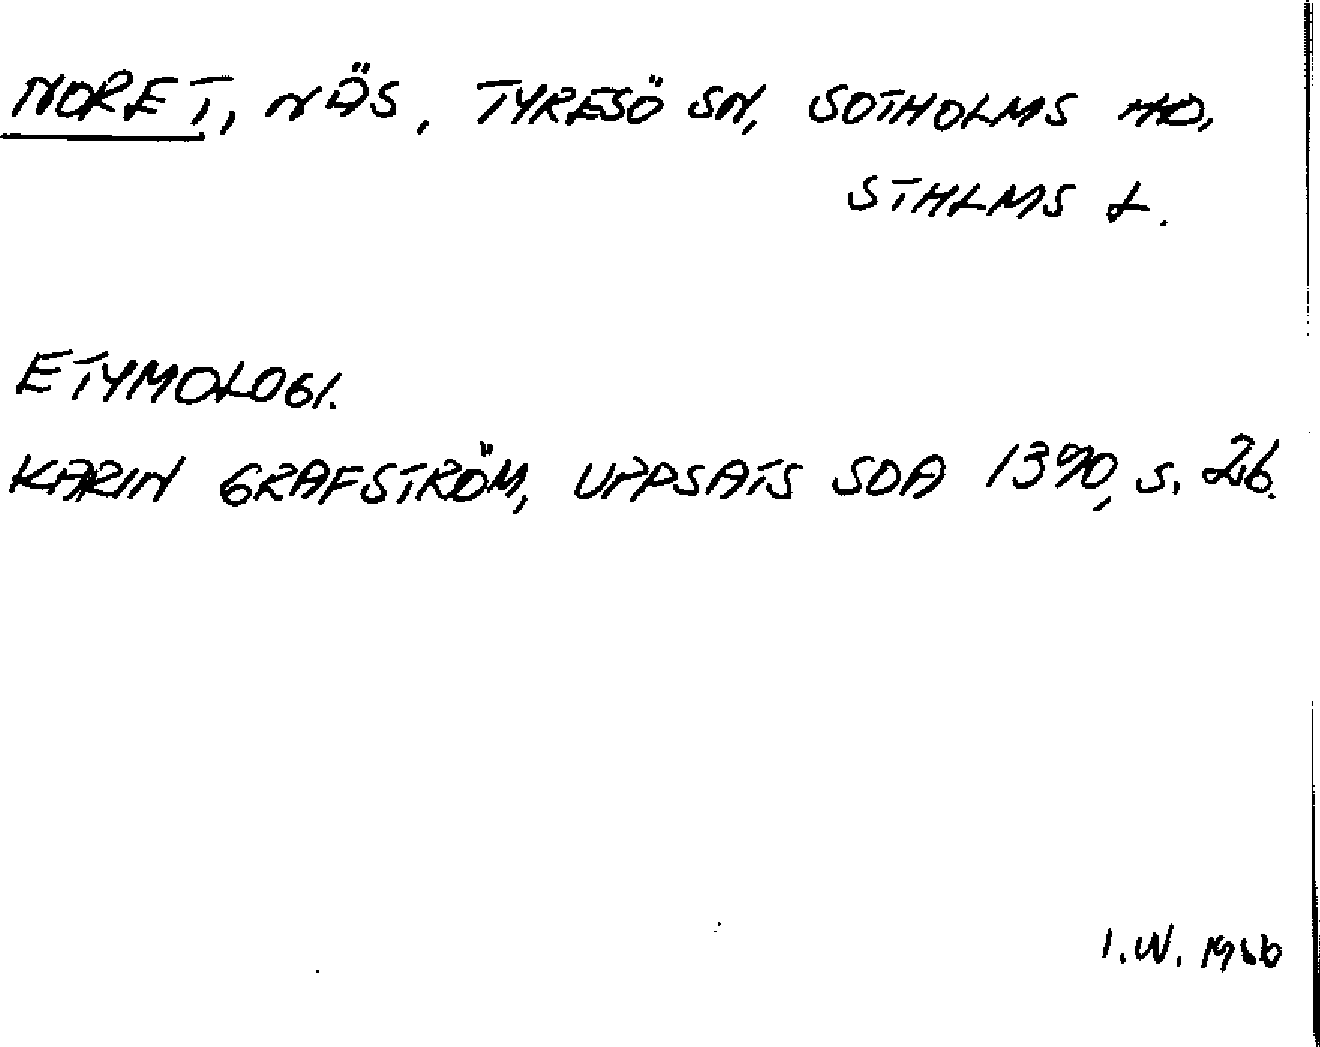 NORET, NÄS, TYRESÖ SN, SOTHOLMS HD,
STHLMS L.
ETYMOLOGI.
KARIN GRAFSTRÖM, UPPSATS SOA 1390, S. 26.
I.W.